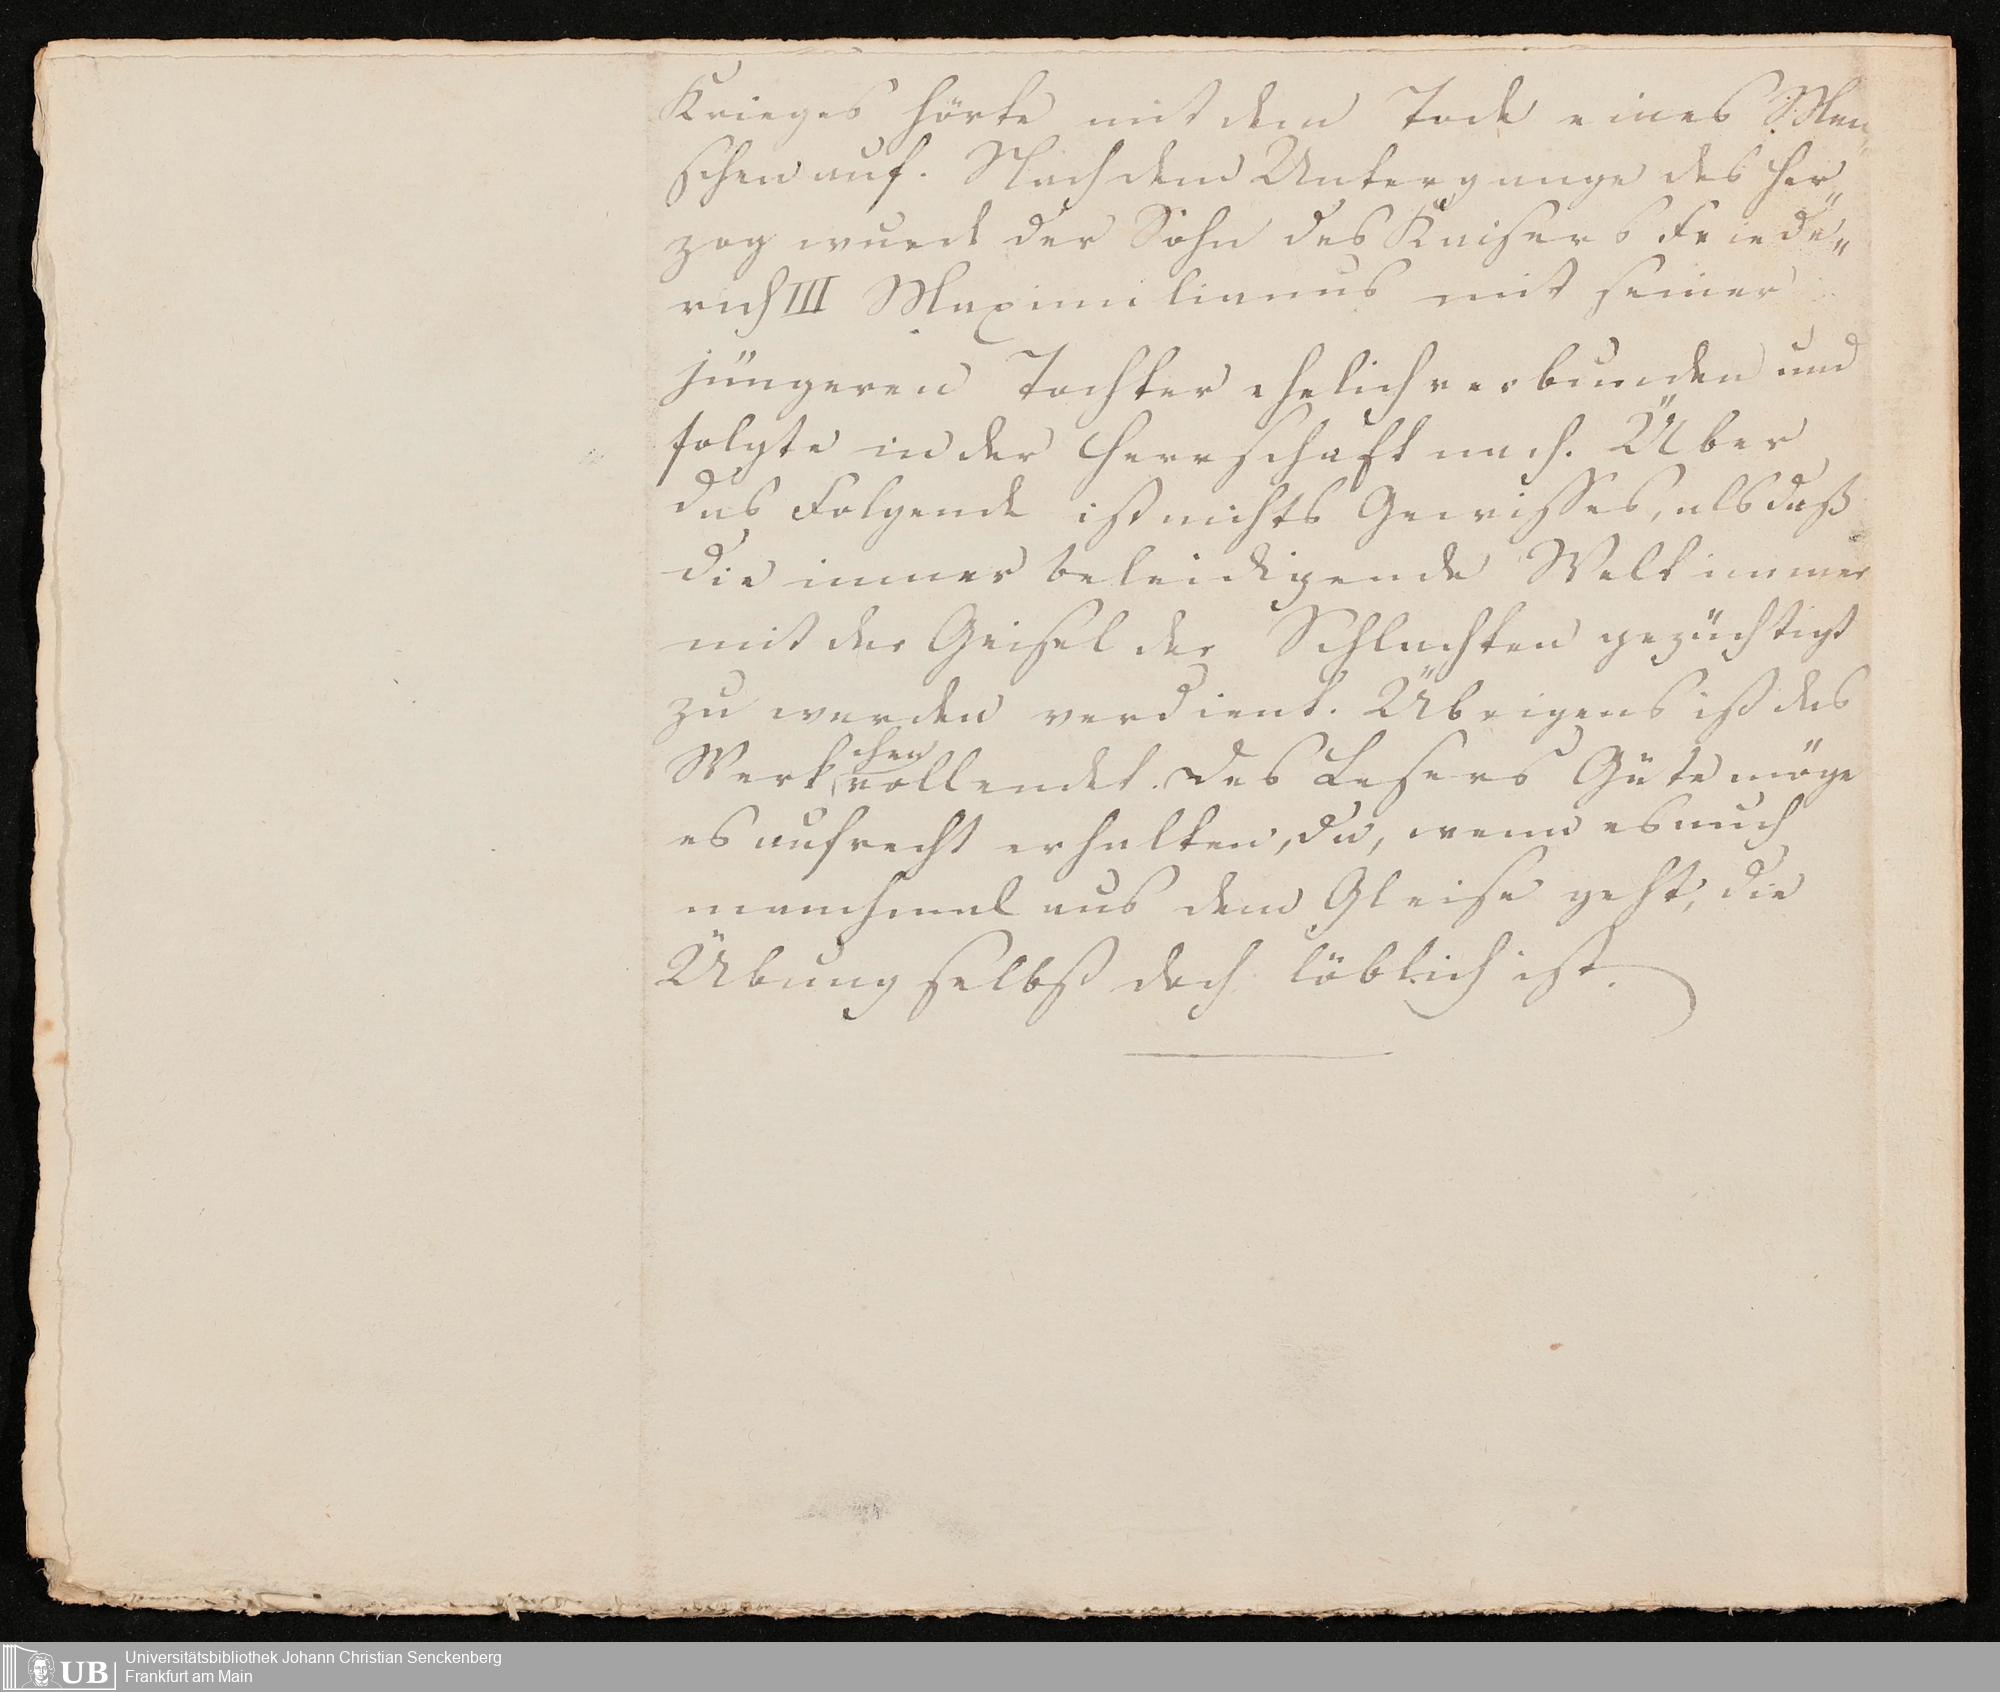 Krieges hörte mit dem Tode eines Men„
schen auf. Nach dem Untergange des Her„
zog wurde der Sohn des Kaisers Friede„
rich III Maximilianus mit seiner
jüngeren Tochter ehelich verbunden und
folgte in der Herrschaft nach. Über
das Folgende ist nichts Gewisses, als daß
die immer beleidigende Welt immer
mit der Geisel der Schlachten gezüchtigt
zu werden verdient. Übrigens ist das
Werkchen vollendet. Des Lesers Güte möge
es aufrecht erhalten, da, wenn es auch
manchmal aus dem Gleise geht, die
Übung selbst doch löblich ist.
UB
Universitätsbibliothek Johann Christian Senckenberg
Frankfurt am Main